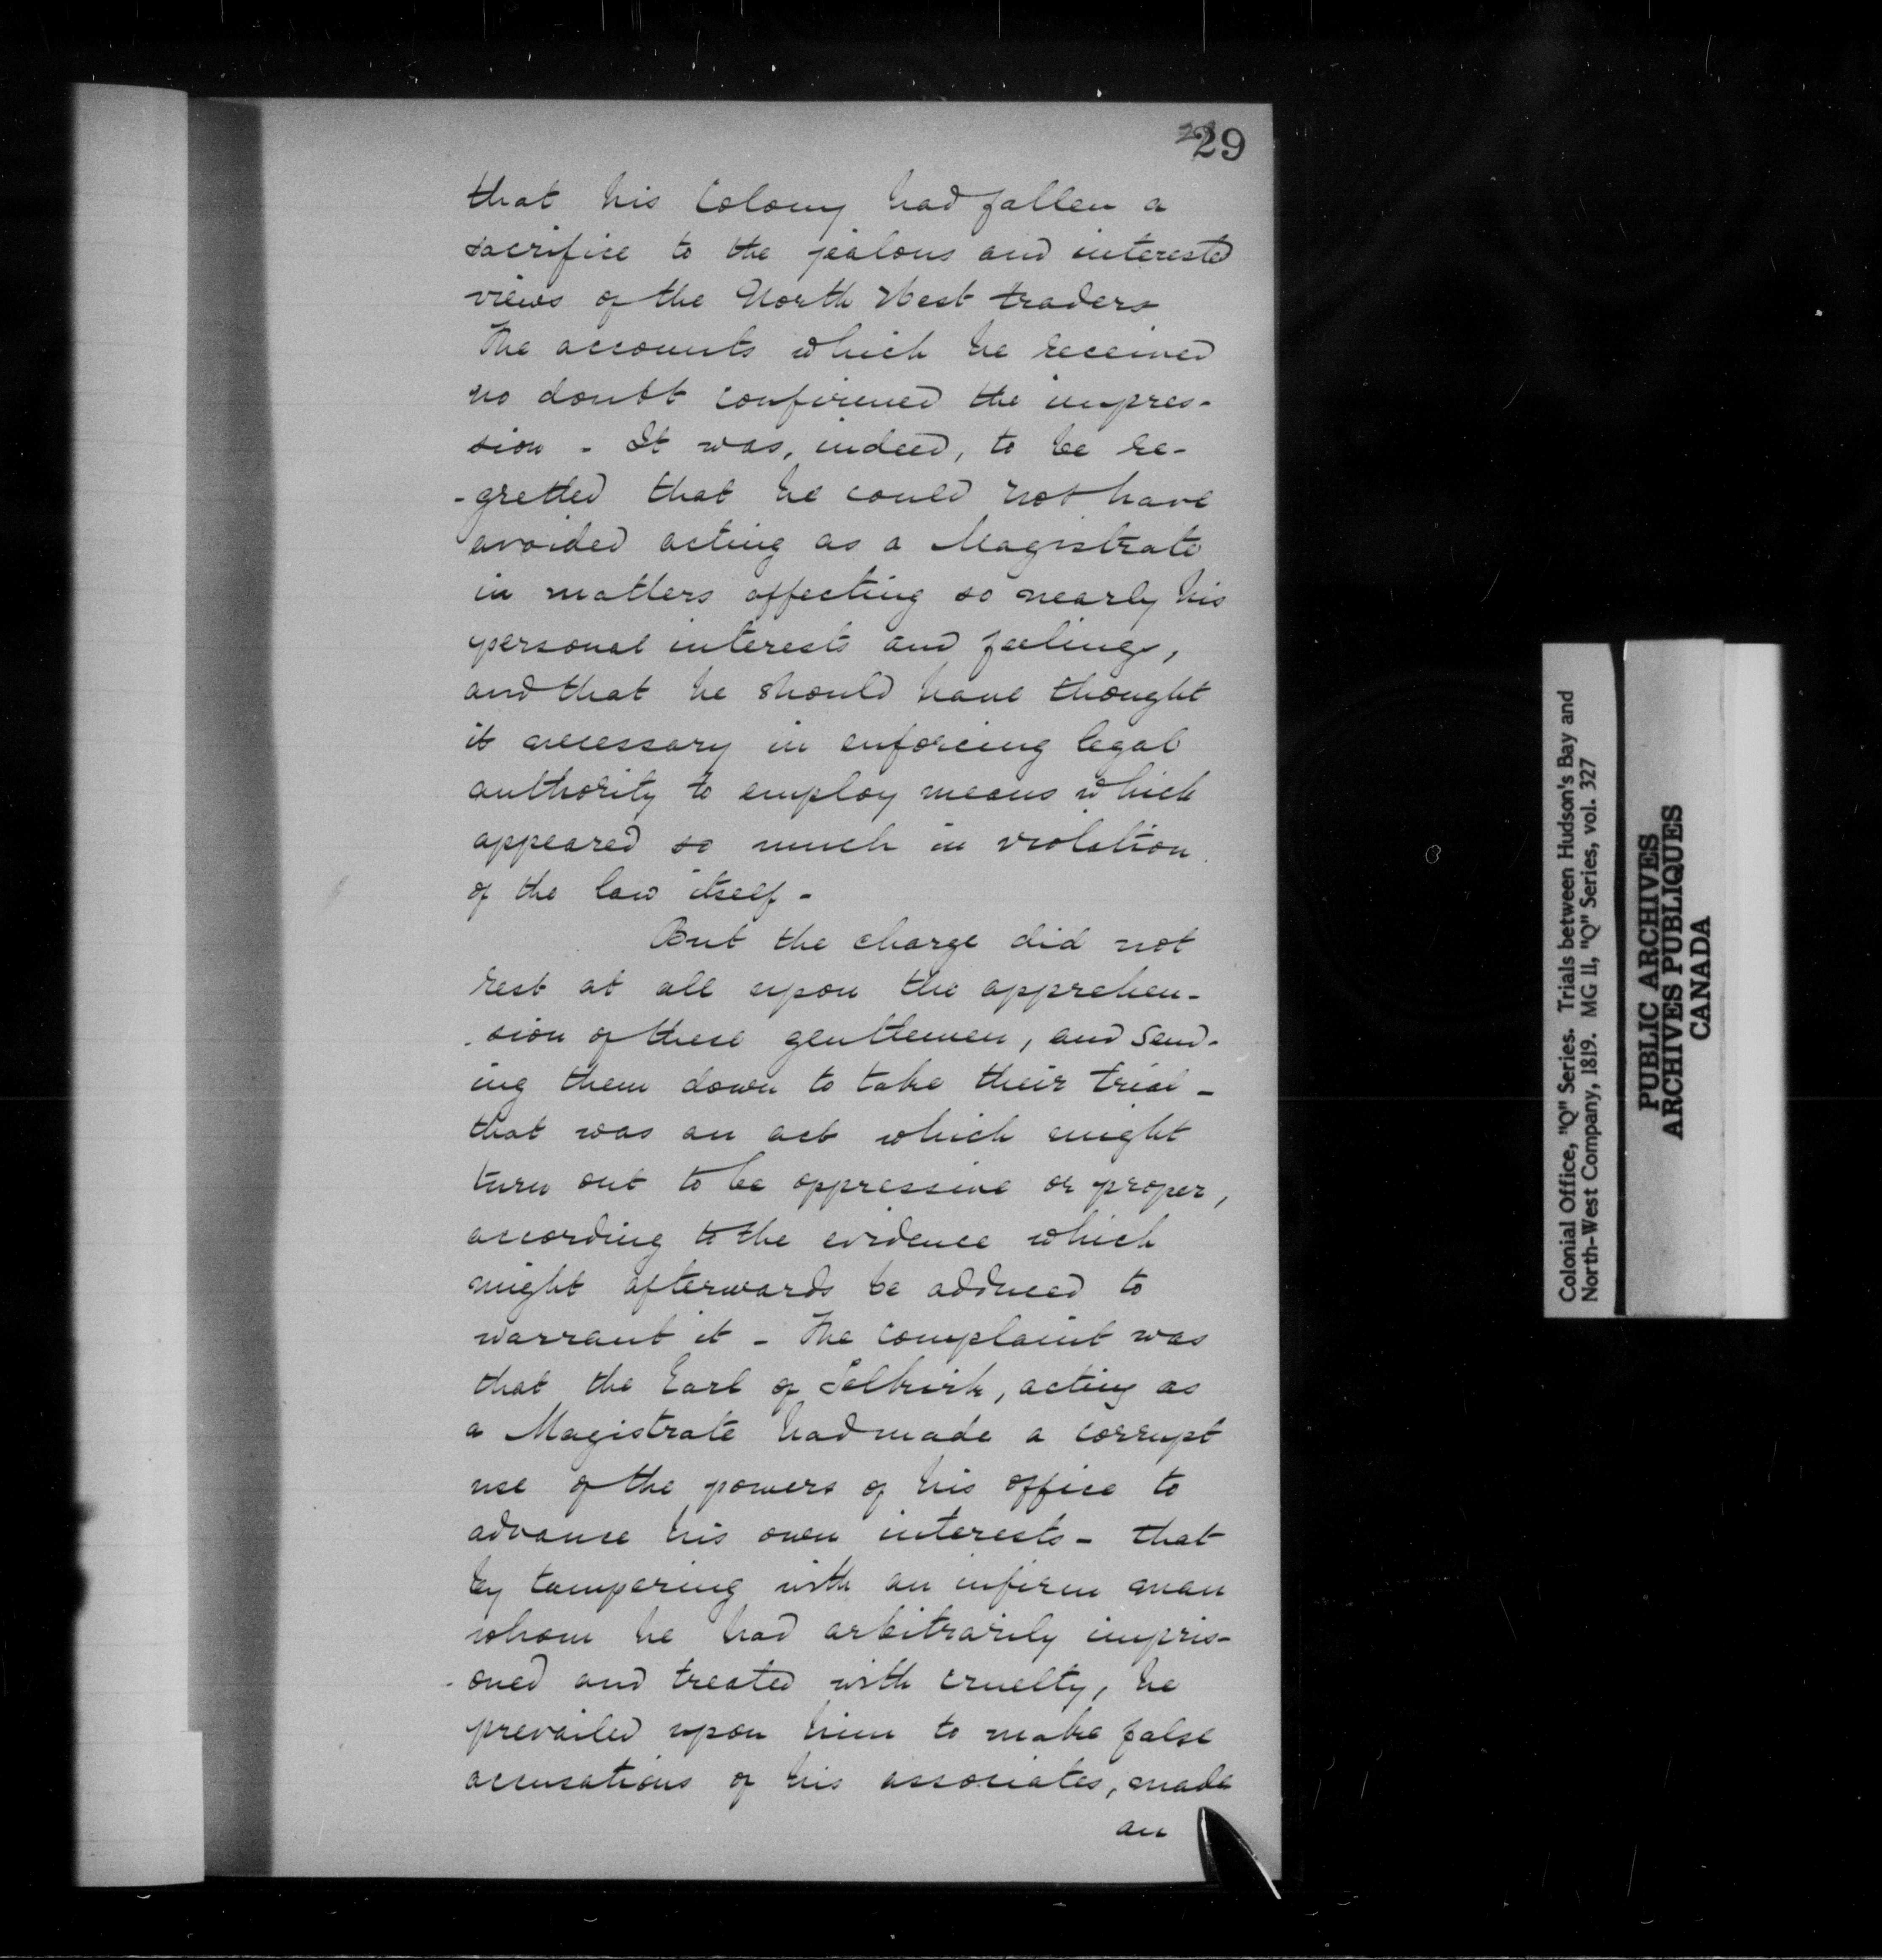 29
that his Colony had fallen a
sacrifice to the jealous and interested
views of the North West traders
The accounts which he received
no doubt confirmed the impres-
sion - It was, indeed, to be re-
-gretted that he could not have
avoided acting as a Magistrate
in matters affecting so nearly his
personal interests and feelings,
and that he should have thought
it necessary in enforcing legal
authority to employ means which
appeared so much in violation
of the law itself -
But the charge did not
rest at all upon the apprehen-
-sion of these gentlemen, and send-
ing them down to take their trial -
that was an act which might
turn out to be oppressive or proper,
according to the evidence which
might afterwards be adduced to
warrant it - The complaint was
that the Earl of Selkirk, acting as
a Magistrate had made a corrupt
use of the powers of his office to
advance his own interests - that
by tampering with an infirm man
whom he had arbitrarily impris-
-oned and treated with cruelty, he
prevailed upon him to make false
accusations of his associates, made
an
Colonial Office, "Q" Series. Trials between Hudson's Bay and
North-West Company, 1819. MG 11, "Q" Series, vol. 327
PUBLIC ARCHIVES
ARCHIVES PUBLIQUES
CANADA